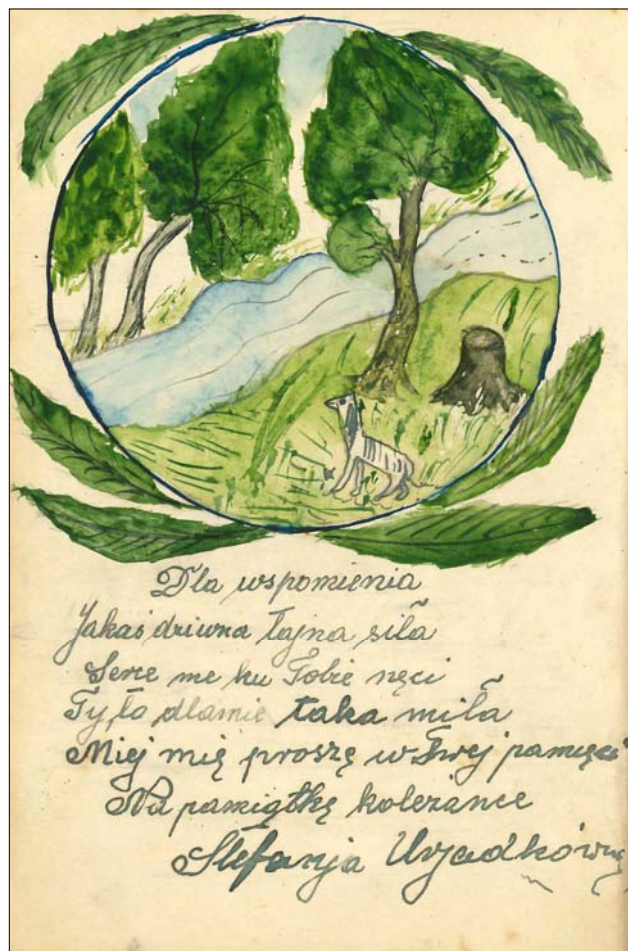 Dla wspomienia
Jakaś dziwna tajna siła
Serce me ku Tobie nęci
Ty to dlamie taka miła
Miej mię proszę w Twej pamięci
Na pamiątkę koleżance
Stefanja